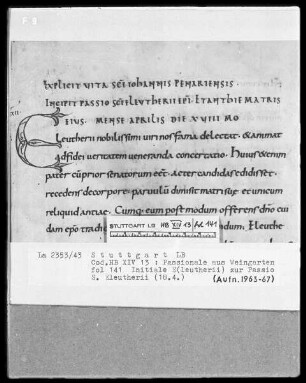 F 8
EXPLICIT VITA SCI IOHANNIS PENARIENSIS.
INCIPIT PASSIO SCI ELEUTHERII EPI. ET ANTHIE MATRIS
EIUS. MENSE APRILIS DIE XVIII MO
Eleutherii nobilissimi viri nos fama delectat. & animat
ad fidei veritatem veneranda concertatio. Huius enim
pater cu prior senatorum eent. Acter candidas edidisset.
recedens de corpore. parvulu dimisit matri suę. et unicum
reliquid antiae. Cumq; eum postmodum offerens dno cui
dam epo trad
STUTTGART LB HB XIV 13 fol. 141
La 2353/43 Stuttgart LB
Cod.HB XIV 13 : Passionale aus Weingarten
fol 141 Initiale E(leutherii) zur Passio
S. Eleutherii (18.4.) (Aufn.1963-67)